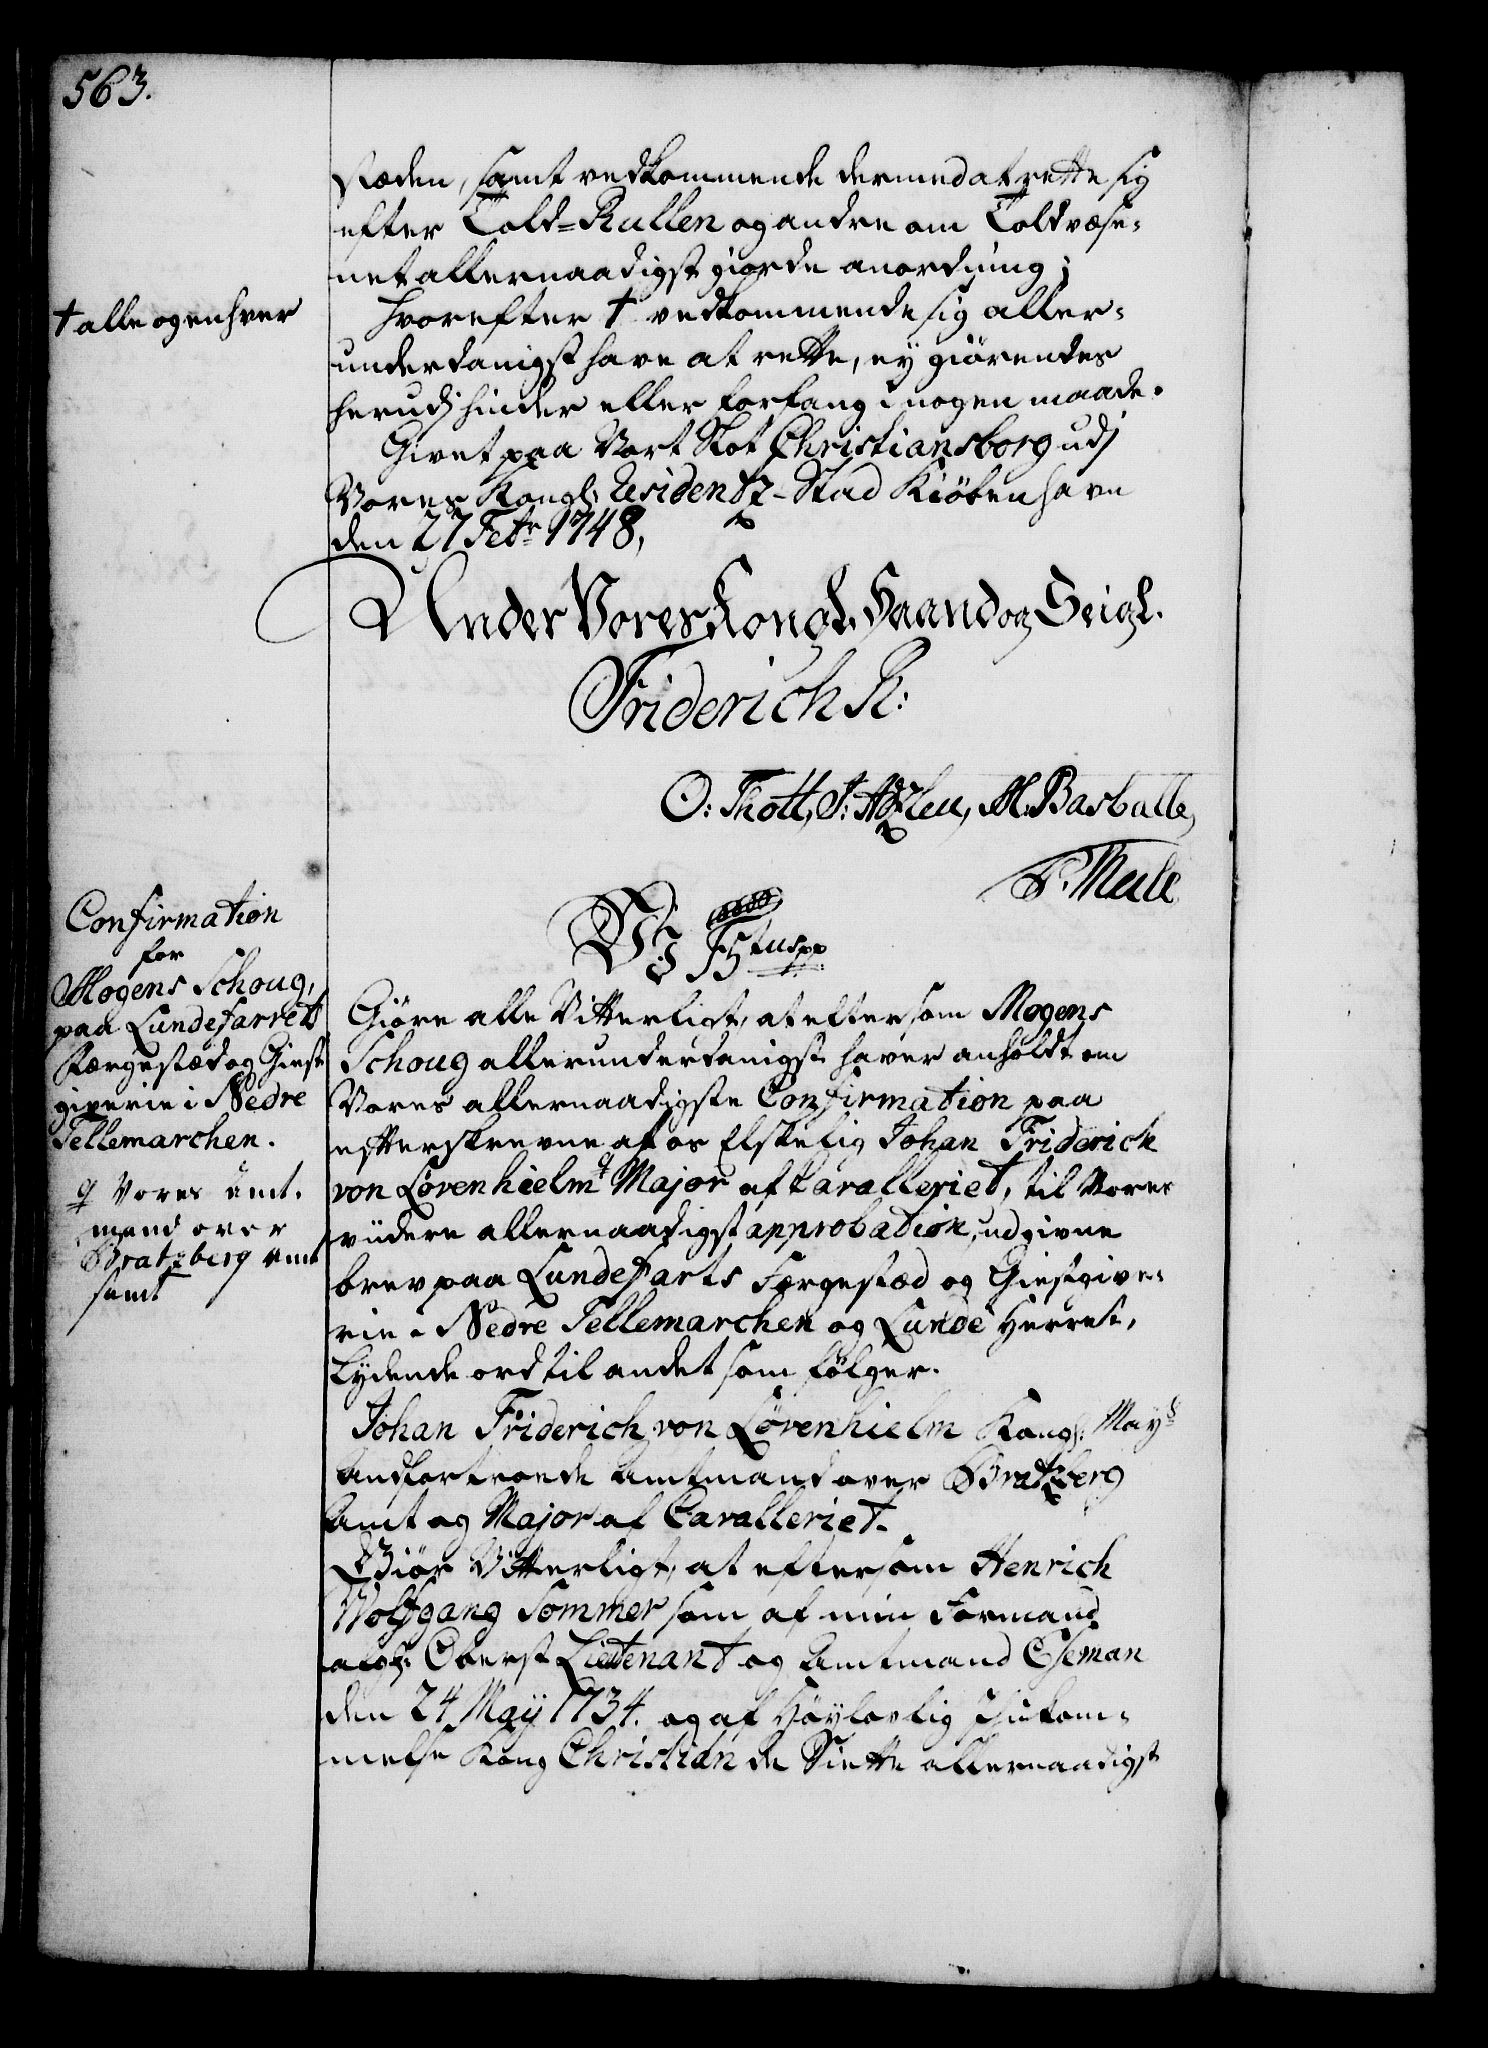 563.
stæden, samt vedkommende dermed at rette sig
efter Told-Rullen og andre om Toldvæse-
net allernaadigst giorde anordning;
† alle og enhver
hvorefter † vedkommende sig aller-
underdanigst have at rette, ey giörendes
herudj hinder eller forfang i nogen maade.
Givet paa Vort Slot Christiansborg udj
Vores Kongl: Residentz-Stad Kiöbenhavn
den 27 Febr: 1748,
Under Vores Kongl. Haand og Seigl.
Friderich R:
O: Thott, J: M. Basballe,
Confirmation
for
Mogens Schoug,
paa Lundefarrets
Færgestæd og Giest
giverie i Nedre
Tellemarchen.
Vores Amt-
mand over
Bratzberg Amt
samt
Vj F 5tus pp
Giöre alle Vitterligt, at eftersom Mogens
Schoug allerunderdanigst haver anholdt om
Vores allernaadigste Confirmation paa
efterskrevne af os Elskelig Johan Friderich
von Lövenhielm Major af Cavalleriet, til Vores
viidere allernaadigst approbation, udgivne
brev paa Lundefarts Færgestæd og Giestgive-
rie i Nedre Tellemarchen og Lunde Herret,
lydende ord til andet som fölger.
Johan Friderich von Lövenhielm Kongl: Mayts
Andfortroede Amtmand over Bratzberg
Amt og Major af Cavalleriet.
Giör Vitterligt, at eftersom Henrich
Wolfgang Sommer som af min Formand
afgl: Oberst Lieutenant og Amtmand Eseman
den 24 May 1734. og af Höylovlig Ihukom-
melse Kong Christian de Siette allernaadigst